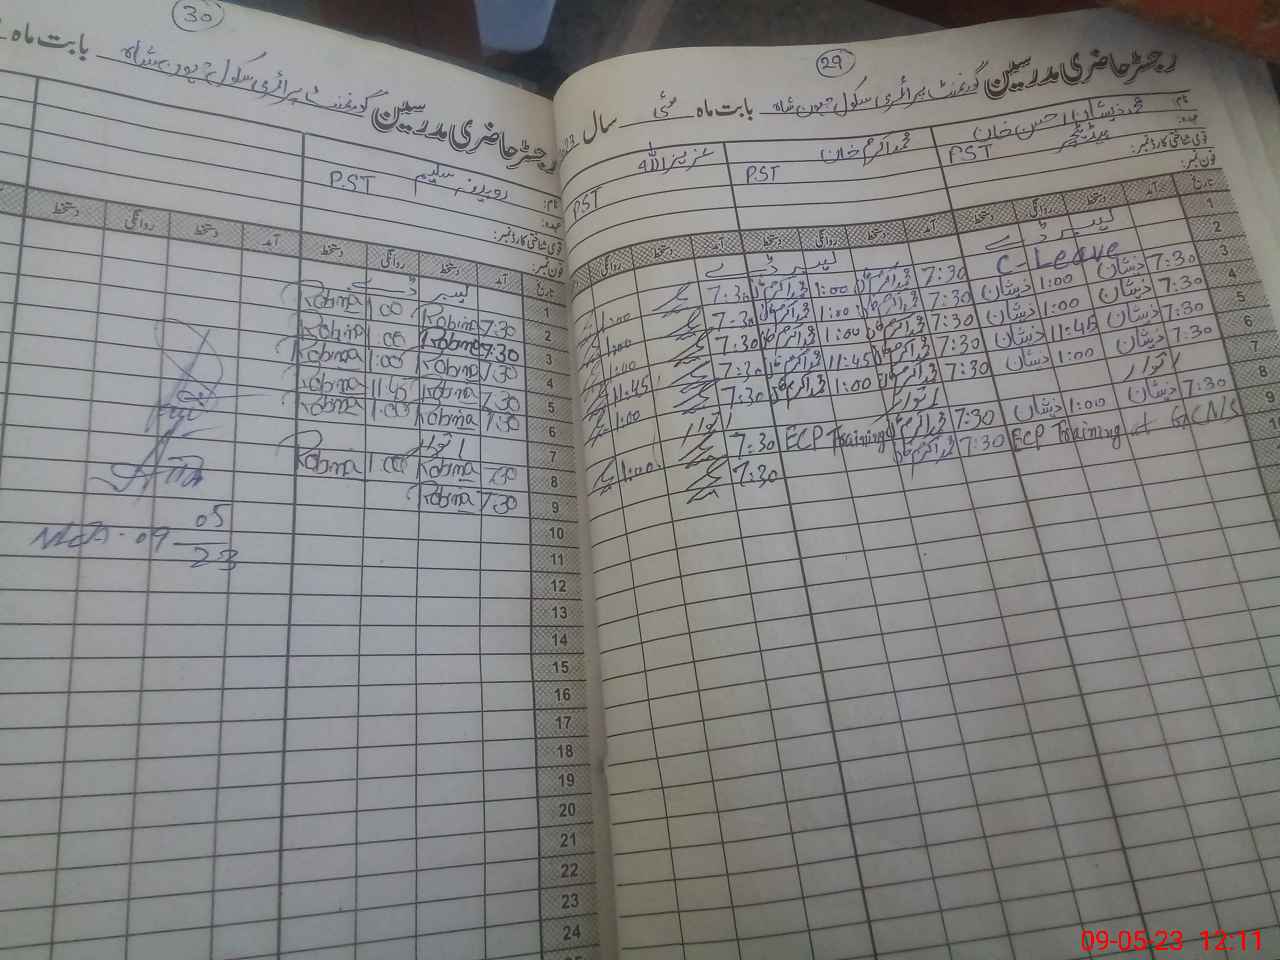 29
رجسٹر حاضری مدرسین گورنمنٹ پرائمری سکول بابت ماہ مئی سال 23
نام: محمد ذیشان احسن خان محمد اکرم خان عزیز اللہ
عہدہ: ہیڈ ٹیچر PST P.ST P.ST
قومی شناختی کارڈ نمبر:
فون نمبر:
تاریخ آمد دستخط روانگی دستخط آمد دستخط روانگی دستخط آمد دستخط روانگی
1 لیبر ڈے لیبر ڈے
2 C-Leave 7:30 محمد اکرم خان 1:00 محمد اکرم خان 7:30 1:00
3 7:30 ذیشان 1:00 ذیشان 7:30 محمد اکرم خان 1:00 محمد اکرم خان 7:30 1:00
4 7:30 ذیشان 1:00 ذیشان 7:30 محمد اکرم خان 1:00 محمد اکرم خان 7:30 1:00
5 7:30 ذیشان 11:45 ذیشان 7:30 محمد اکرم خان 11:45 محمد اکرم خان 7:30 11:45
6 7:30 ذیشان 1:00 ذیشان 7:30 محمد اکرم خان 1:00 محمد اکرم خان 7:30 1:00
7 اتوار اتوار اتوار
8 7:30 ذیشان 1:00 ذیشان 7:30 محمد اکرم خان ECP Training 7:30 1:00
9 ECP Training at 7:30 محمد اکرم خان 7:30
10
30
رجسٹر حاضری مدرسین گورنمنٹ پرائمری سکول بابت ماہ
نام: روبینہ سلیم
عہدہ: P.ST
قومی شناختی کارڈ نمبر:
فون نمبر:
تاریخ آمد دستخط روانگی دستخط آمد دستخط روانگی دستخط
1 لیبر ڈے
2 7:30 Robina 1:00 Robina
3 7:30 Robina 1:00 Robina
4 7:30 Robina 1:00 Robina
5 7:30 Robina 11:45 Robina
6 7:30 Robina 1:00 Robina
7 اتوار
8 7:30 Robina 1:00 Robina
9 7:30 Robina
10
11
12
13
14
15
16
17
18
19
20
21
22
23
24
09 05
23
09-05-23 12:11